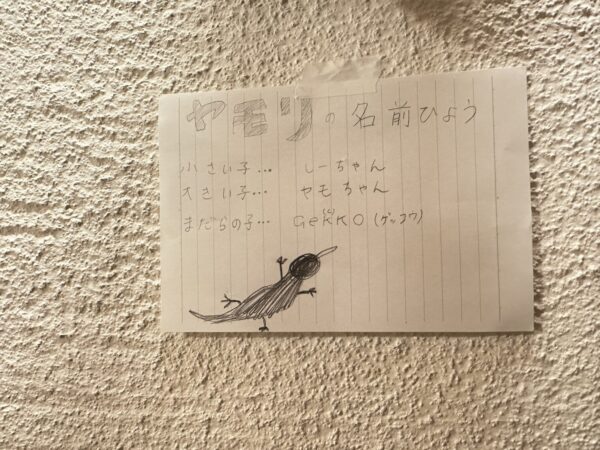 ヤモリの名前ひょう
小さい子… しーちゃん
大きい子… ヤモちゃん
まだらの子… GeKKO (ゲッコウ)